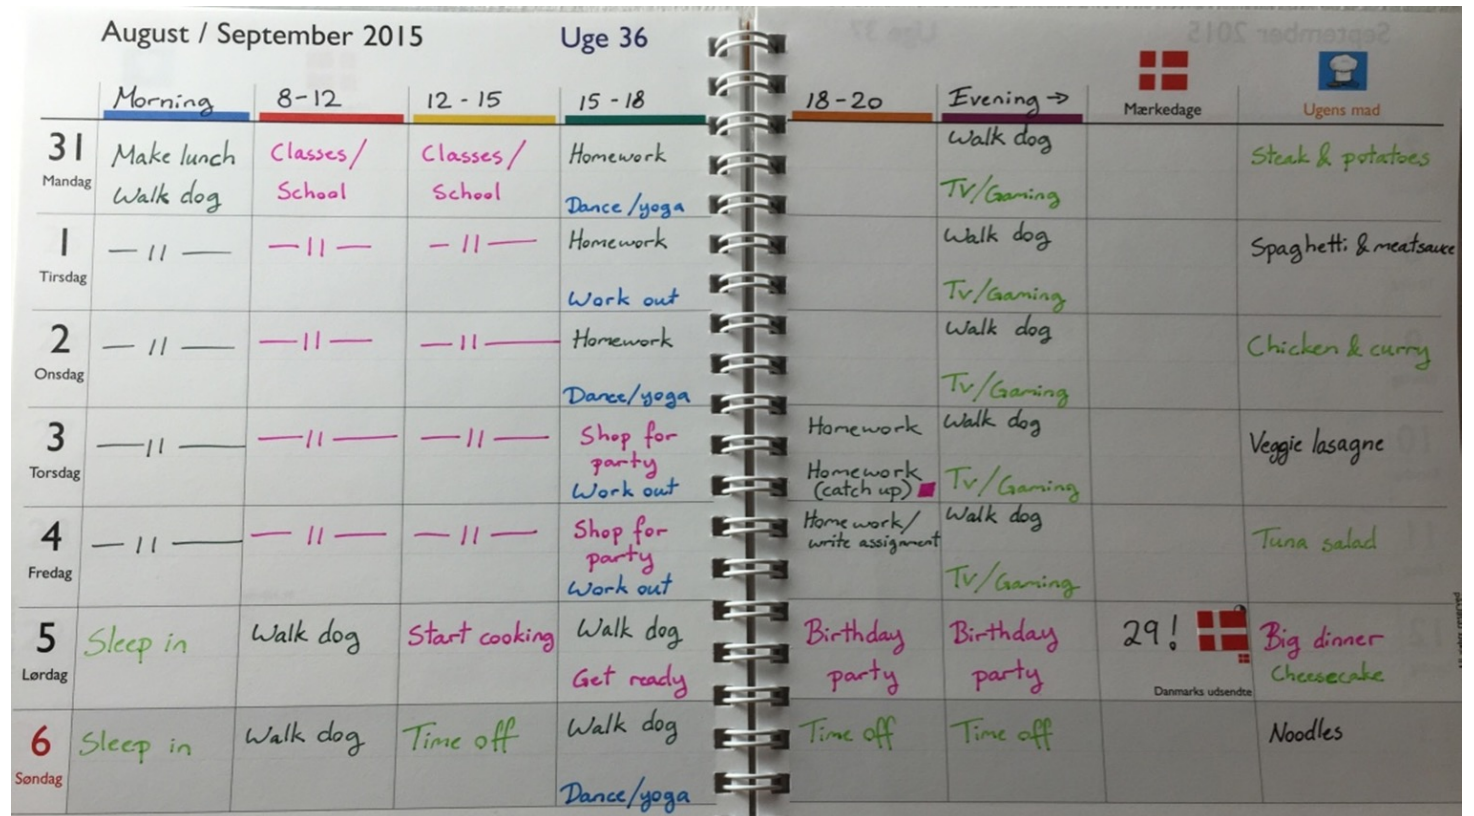 August / September 2015 Uge 36
Morning 8-12 12-15 15-18 18-20 Evening → Mærkedage Ugens mad
31 Mandag
Make lunch
Walk dog
Classes/
School
Classes/
School
Homework
Dance/yoga
Walk dog
TV/Gaming
Steak & potatoes
1 Tirsdag
— 11 — — 11 — — 11 —
Homework
Work out
Walk dog
Tv/Gaming
Spaghetti & meatsauce
2 Onsdag
— 11 — — 11 — — 11 —
Homework
Dance/yoga
Walk dog
Tv/Gaming
Chicken & curry
3 Torsdag
— 11 — — 11 — — 11 —
Shop for
party
Work out
Homework
Homework
(catch up)
Walk dog
Tv/Gaming
Veggie lasagne
4 Fredag
— 11 — — 11 — — 11 —
Shop for
party
Work out
Homework/
write assignment
Walk dog
Tv/Gaming
Tuna salad
5 Lørdag
Sleep in
Walk dog
Start cooking
Walk dog
Get ready
Birthday
party
Birthday
party
29!
Danmarks udsendte
Big dinner
Cheesecake
6 Søndag
Sleep in
Walk dog
Time off
Walk dog
Dance/yoga
Time off
Time off
Noodles